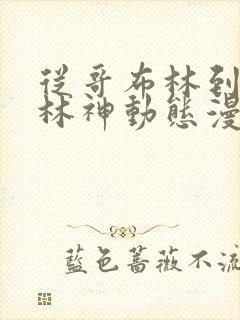 從哥布林到
林神動態漫
藍色薔薇不流